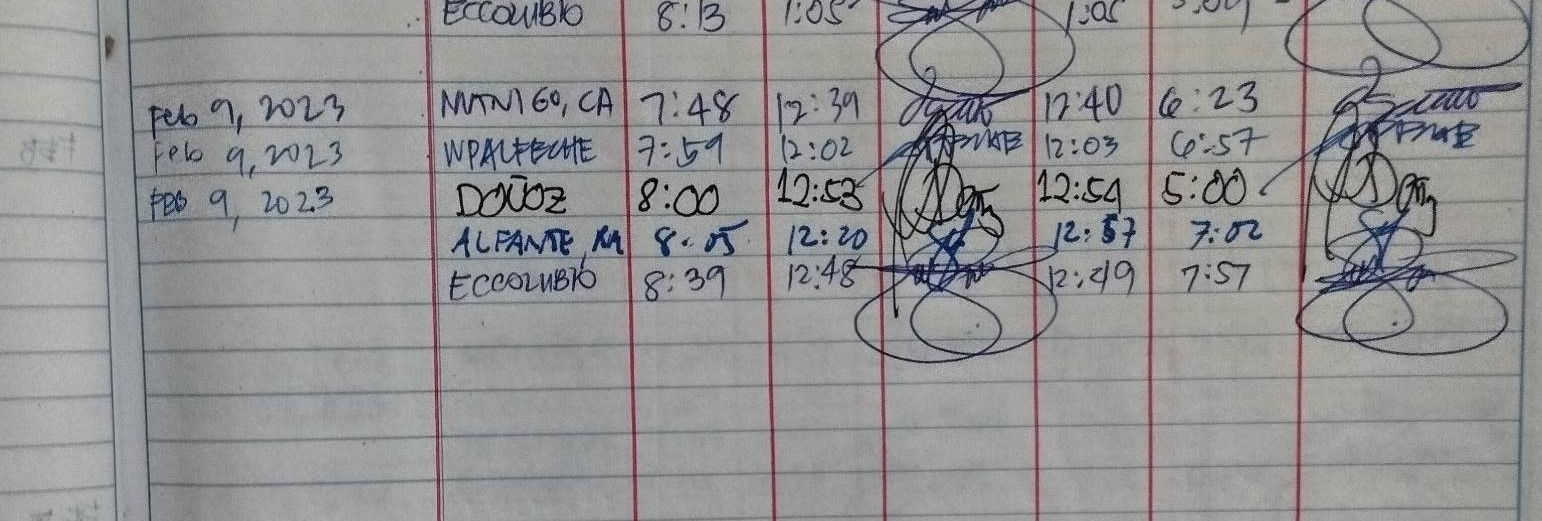 ECCOLUBIO 8:13 1:05 1:05
Feb 9, 2023 MTNIGO, CA 7:48 12:39 12:40 6:23
Feb 9, 2023 WPALFECHE 7:59 12:02 12:03 6:57
FEB 9, 2023 DOÑOZ 8:00 12:53 12:54 5:00
ALFANTE, RA 8:05 12:20 12:57 7:02
ECCOLUBIO 8:39 12:48 12:49 7:57